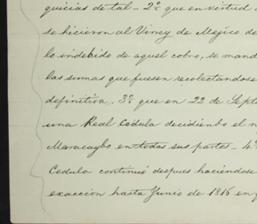 quicias de tal - 2º que en virtud
se hicieron al Virrey de Mejico de
lo indebido de aquel cobro, se mand
las sumas que fuesen recolectandose
definitiva. 3º que en 22 de Septe
una Real Cedula decidiendo el n
Maracaybo en todas sus partes. 4º
Cedula continuó despues haciendose
exaccion hasta Junio de 1816 en